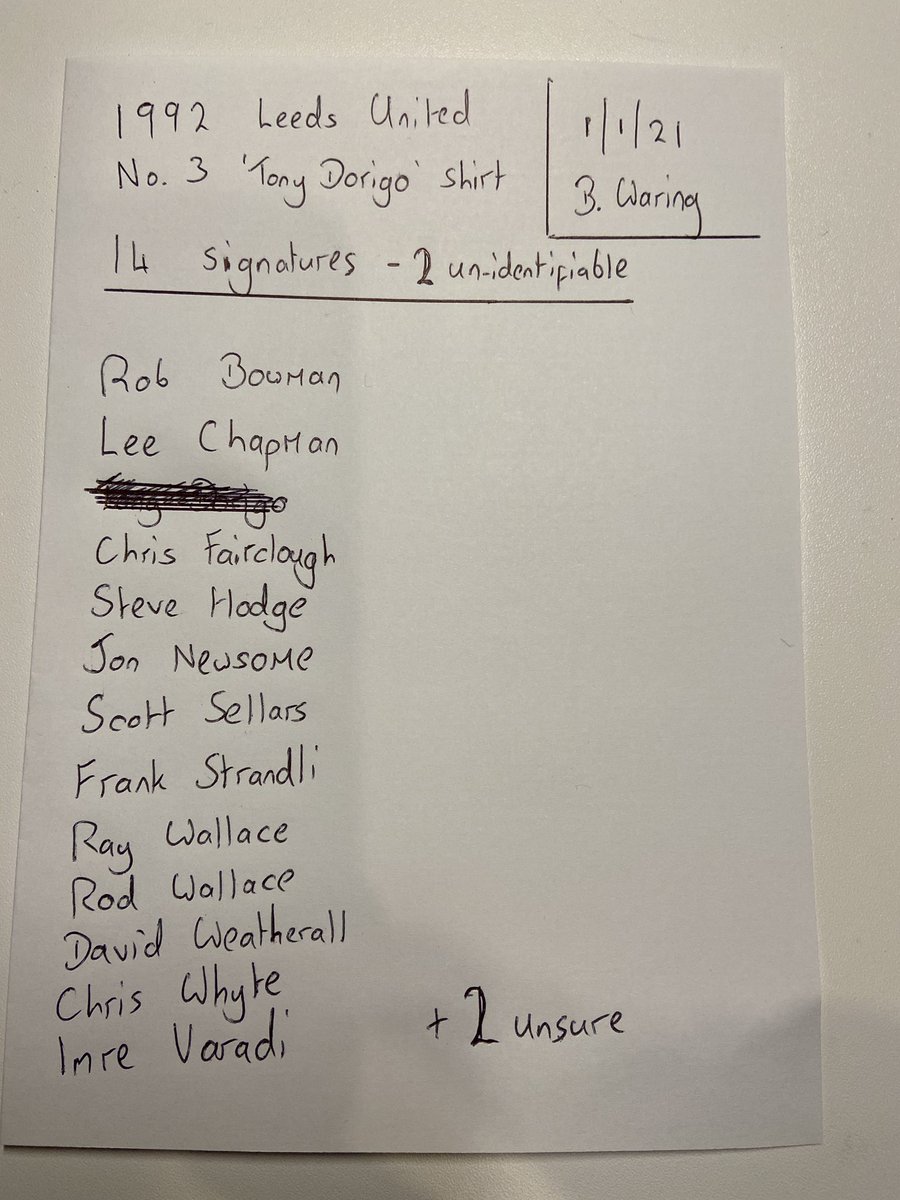 1992 Leeds United
No. 3 'Tony Dorigo' shirt
1/1/21
B. Waring
14 signatures - 2 un-identifiable
Rob Bowman
Lee Chapman
Chris Fairclough
Steve Hodge
Jon Newsome
Scott Sellars
Frank Strandli
Ray Wallace
Rod Wallace
David Weatherall
Chris Whyte
Imre Varadi
+ 2 unsure